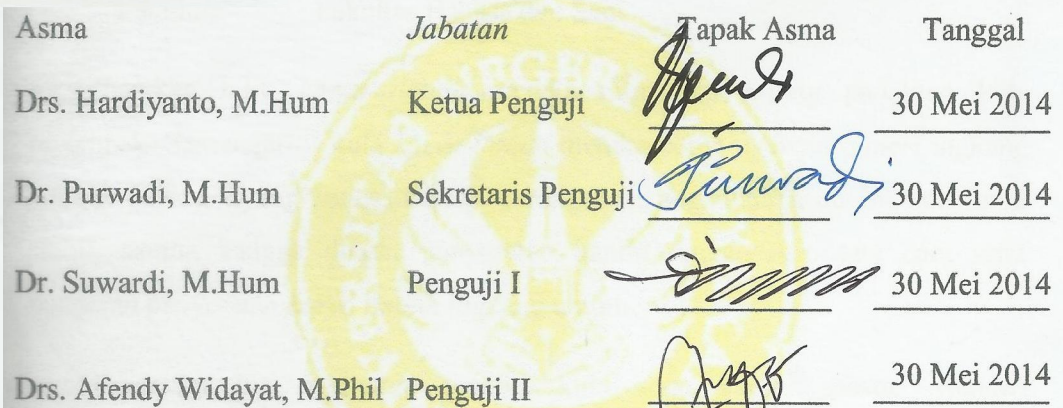 Asma Jabatan Tapak Asma Tanggal
Drs. Hardiyanto, M.Hum Ketua Penguji 30 Mei 2014
Dr. Purwadi, M.Hum Sekretaris Penguji Purwadi 30 Mei 2014
Dr. Suwardi, M.Hum Penguji I 30 Mei 2014
Drs. Afendy Widayat, M.Phil Penguji II 30 Mei 2014